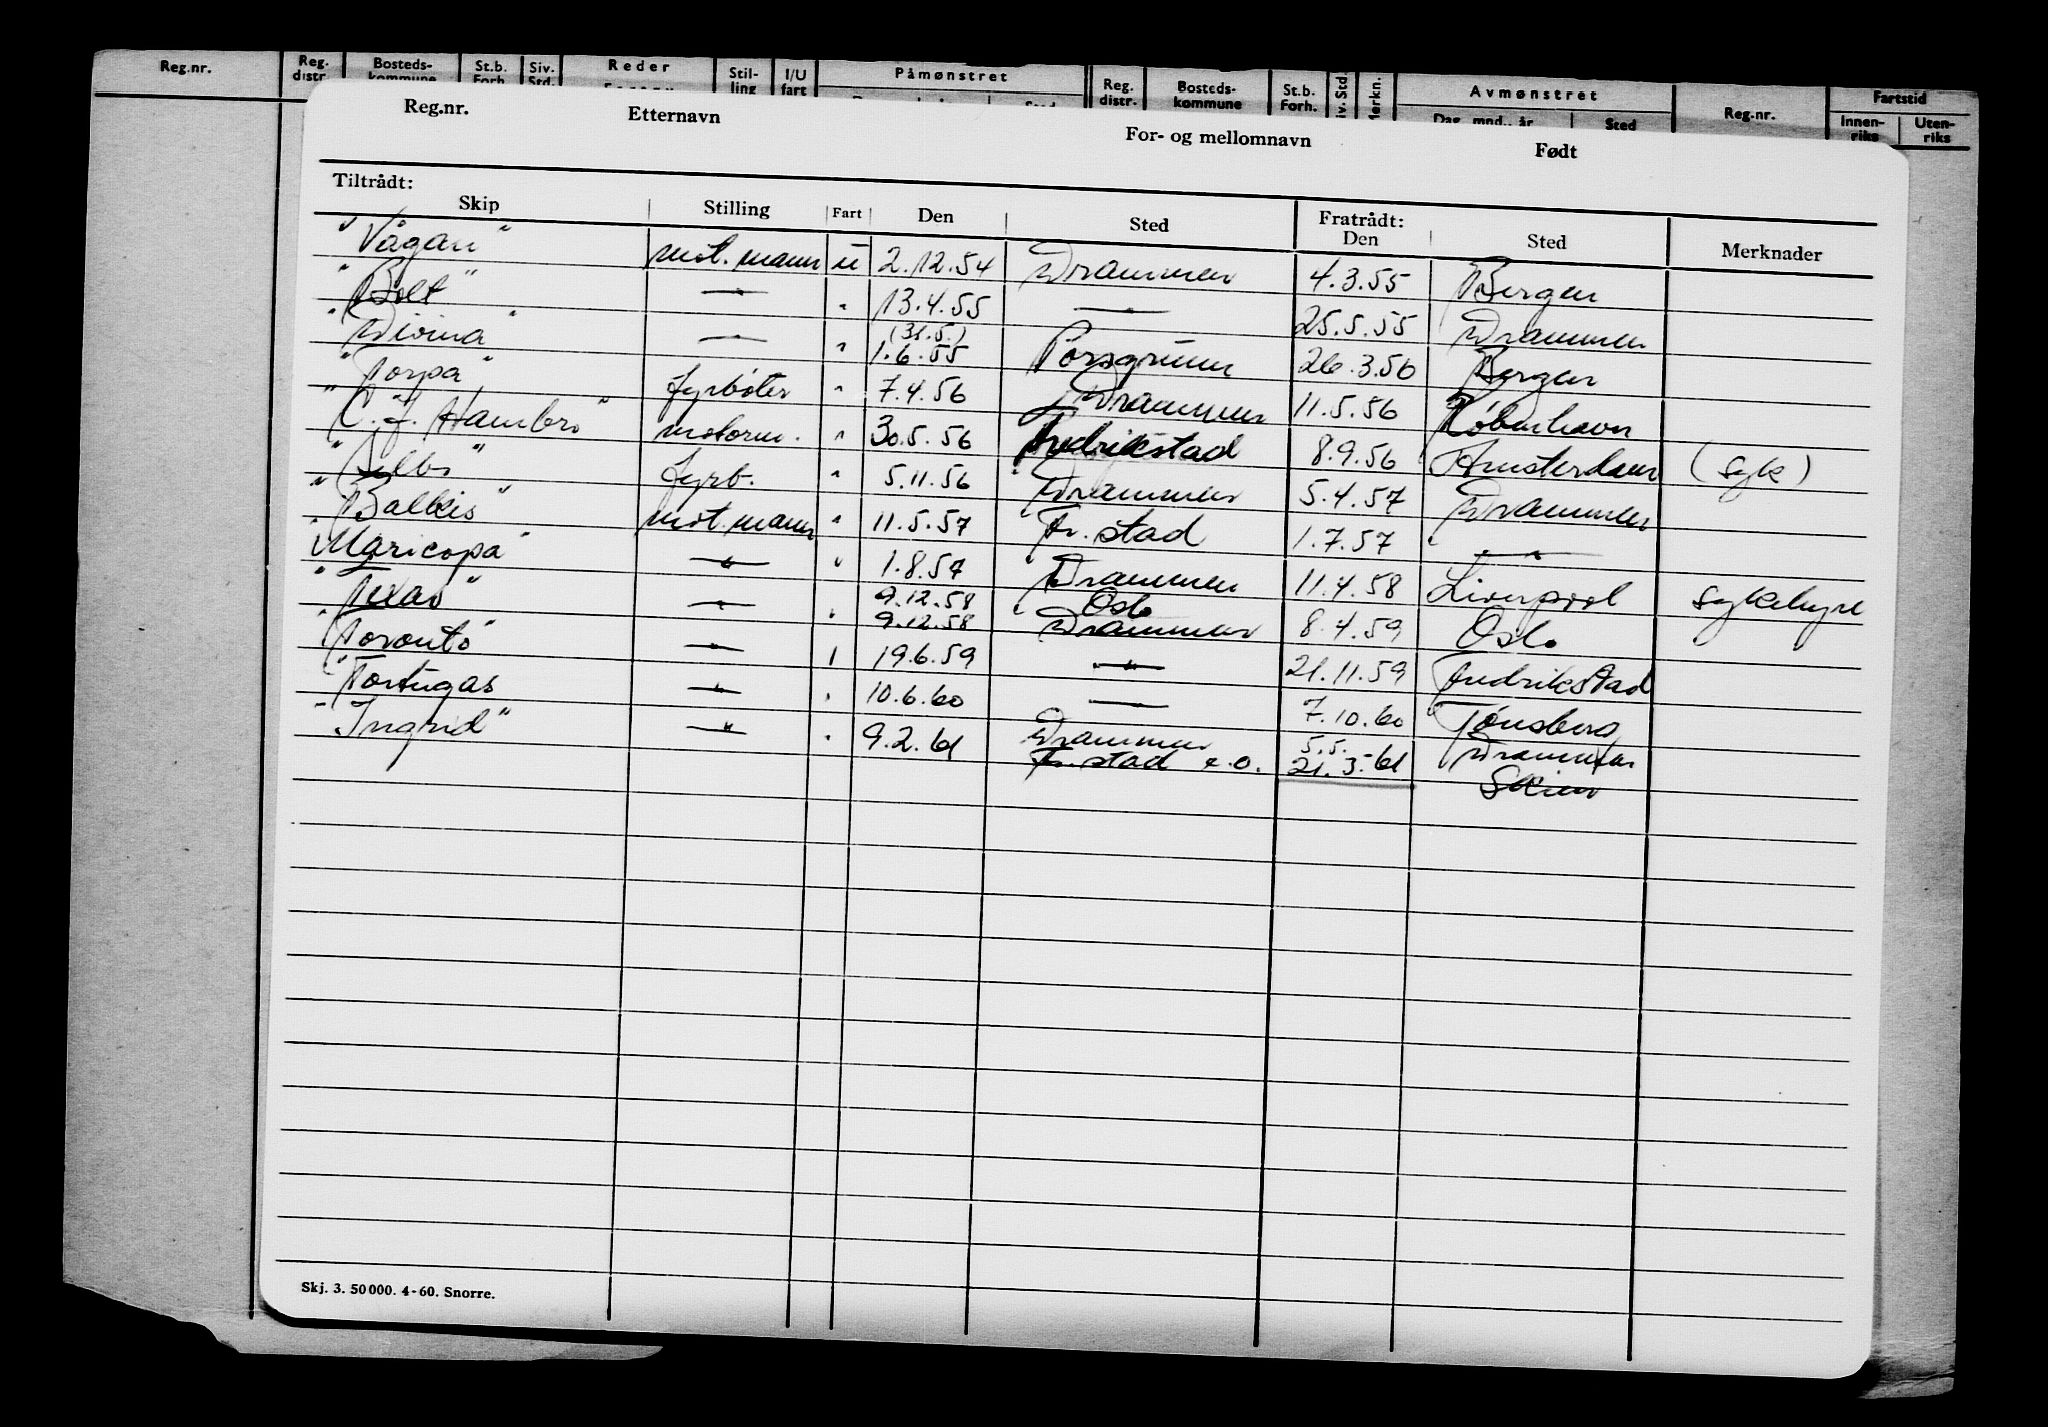 Reg.nr. Reg. distr. Bosteds- kommune St.b. Forh. Siv. Std. Reder Stil- ling I/U fart Påmønstret Reg. distr. Bosteds- kommune St.b. Forh. Siv. Std. Merkn. Avmønstret Dag, mnd., år Sted Reg.nr. Fartstid Innen- riks Uten- riks
Reg.nr. Etternavn For- og mellomnavn Født
Tiltrådt: Fratrådt:
Skip Stilling Fart Den Sted Den Sted Merknader
"Vågan" mot.mann u 2.12.54 Drammen 4.3.55 Bergen
"Bolt" — " 13.4.55 — 25.5.55 Drammen
"Divina" — " (31.5.) 1.6.55 Porsgrunn 26.3.56 Bergen
"Torpa" fyrbøter " 7.4.56 Drammen 11.5.56 København
"C. J. Hambro" motorm. " 30.5.56 Fredrikstad 8.9.56 Amsterdam (syk)
fyrb. " 5.11.56 Drammen 5.4.57 Drammen
"Balkis" mot.mann " 11.5.57 Fr.stad 1.7.57 —"—
"Maricopa" —"— " 1.8.57 Drammen 11.4.58 Liverpool sykehyre
"Texas" —"— " 9.12.58 Oslo 8.4.59 Oslo
9.12.58 Drammen
"Toronto" —"— 1 19.6.59 —"— 21.11.59 Fredrikstad
"Tortugas —"— " 10.6.60 — 7.10.60 Tønsberg
"Ingrid" —"— " 9.2.61 Drammen 5.5. Drammen
Fr.stad e.o. 21.3.61 Skien
Skj. 3. 50000. 4-60. Snorre.